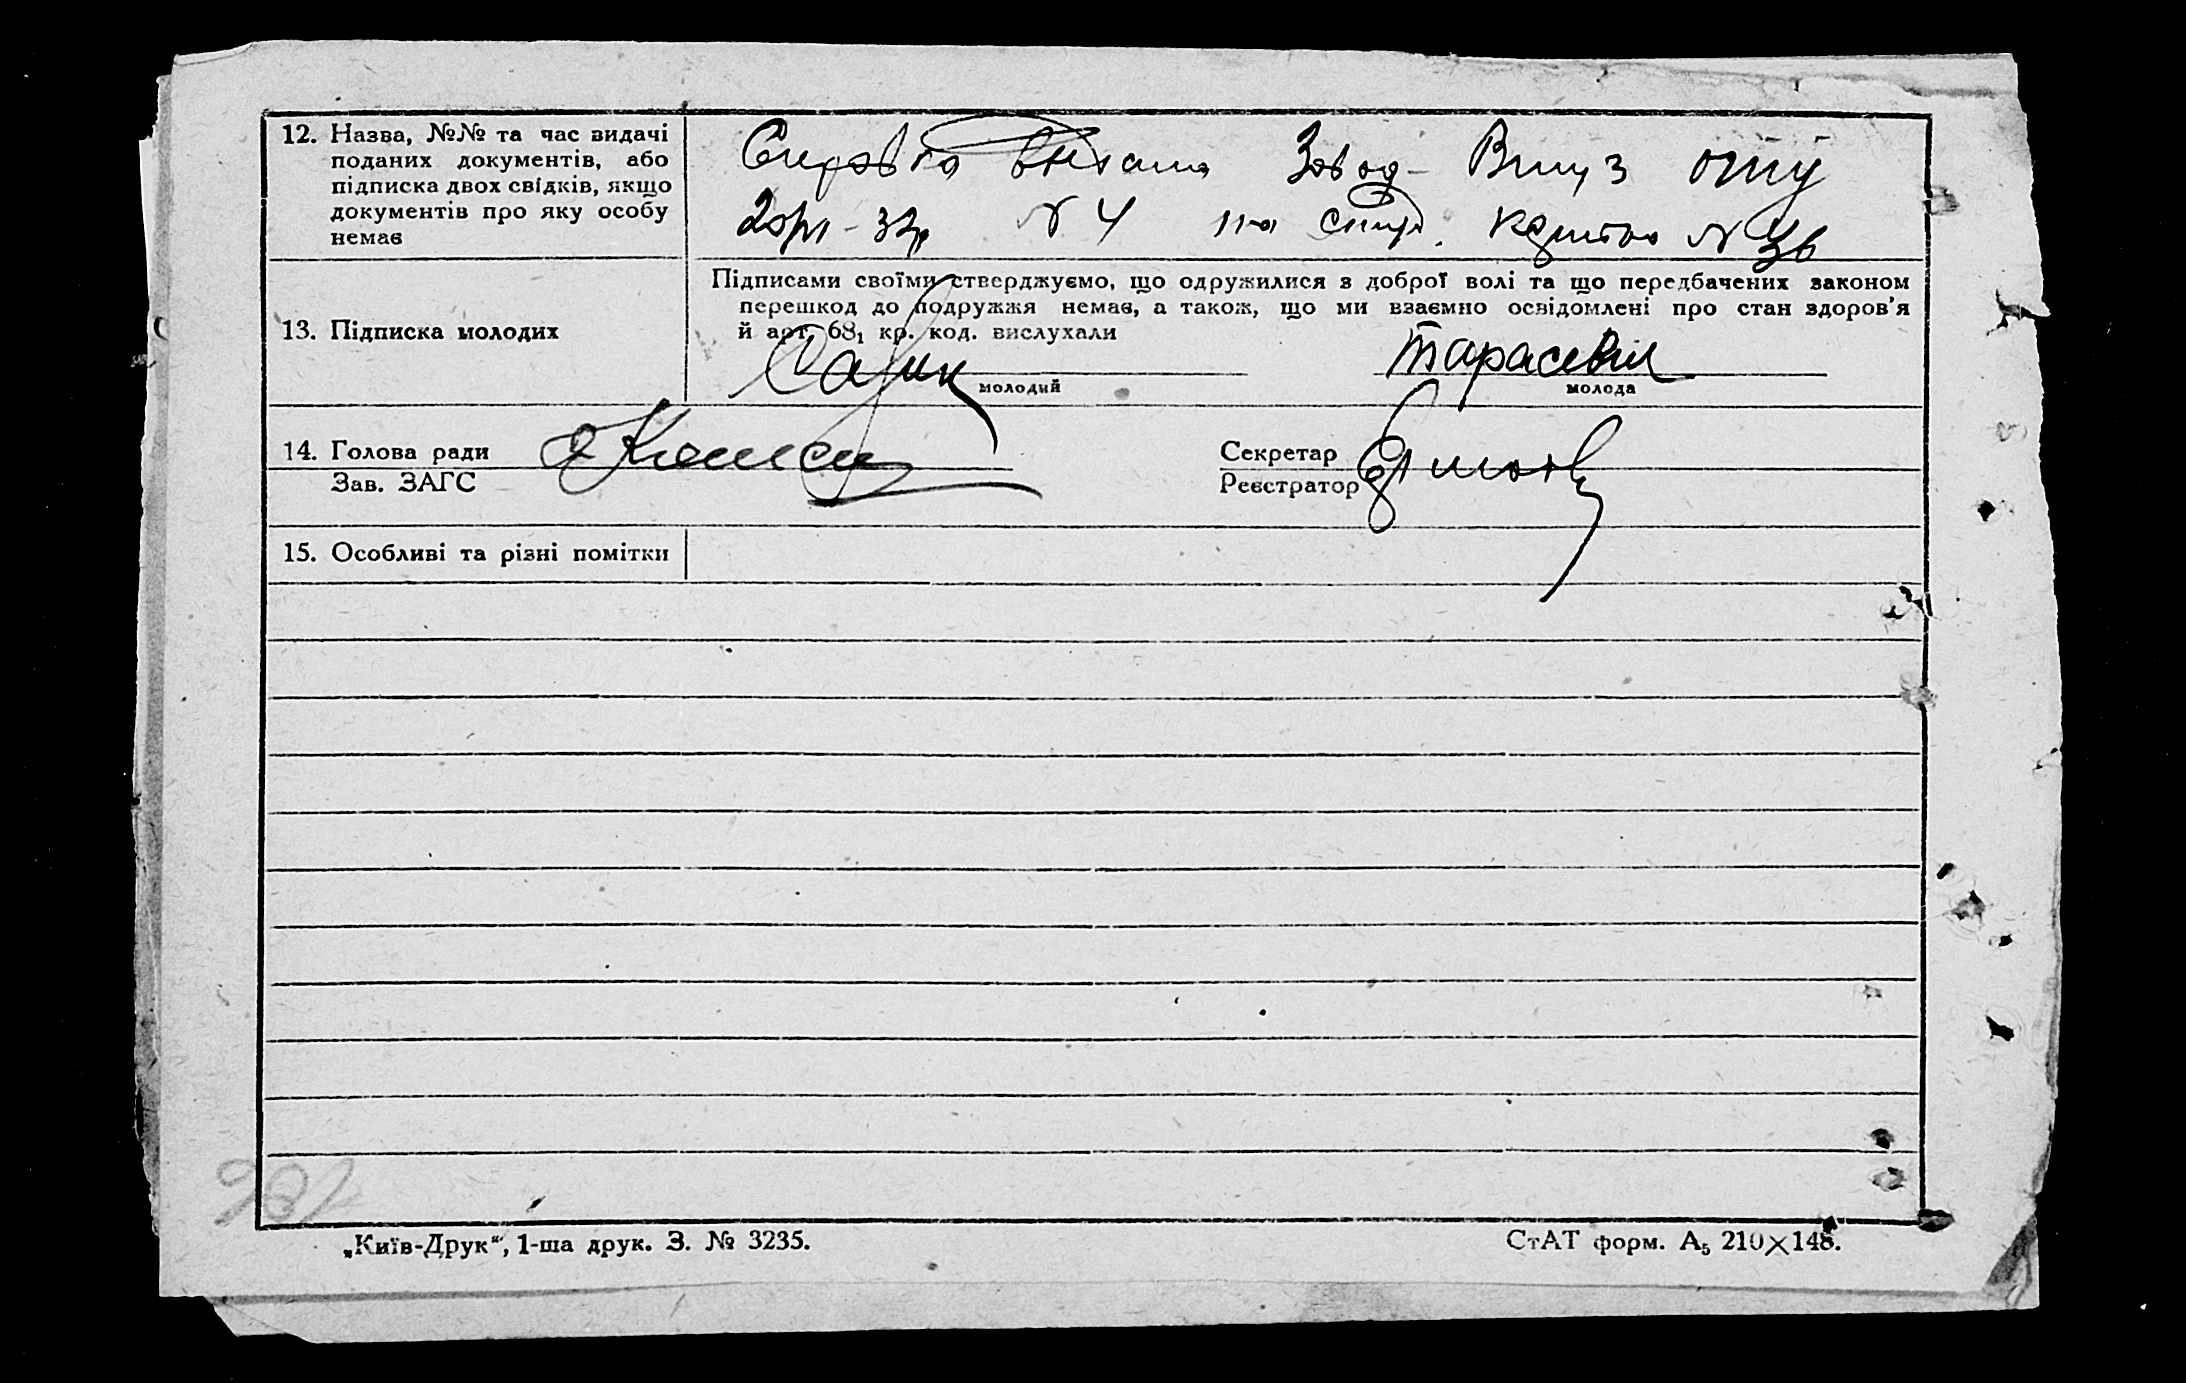 12. Назва, №№ та час видачі
поданих документів, або
підписка двох свідків, якщо
документів про яку особу
немає
Справка Завод- Втуз
№ 4 на студ. №
13. Підписка молодих
Підписами своїми стверджуємо, що одружилися з доброї волі та що передбачених законом
перешкод до подружжя немає, а також, що ми взаємно освідомлені про стан здоров'я
й арт. 68₁ кр. код. вислухали
Тарасевич
молодий
молода
14. Голова ради
Зав. ЗАГС
Секретар
Реєстратор
15. Особливі та різні помітки
„Київ-Друк“, 1-ша друк. З. № 3235.
СтАТ форм. А₅ 210×148.